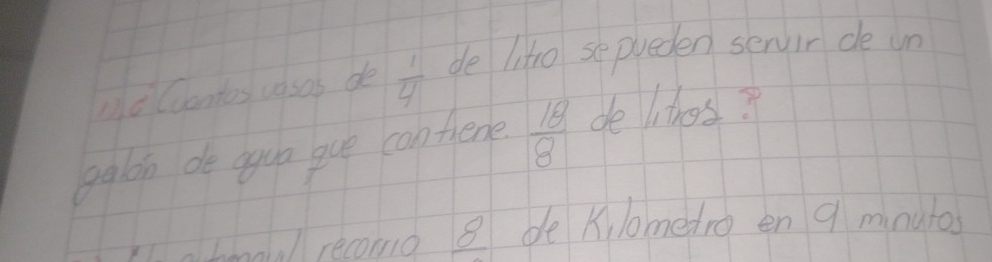 ¿Cuantos vasos de 1/4 de litro se pueden servir de un
galón de agua que contiene 18/8 de litros?
recorrio 8 de Kilometro en 9 minutos